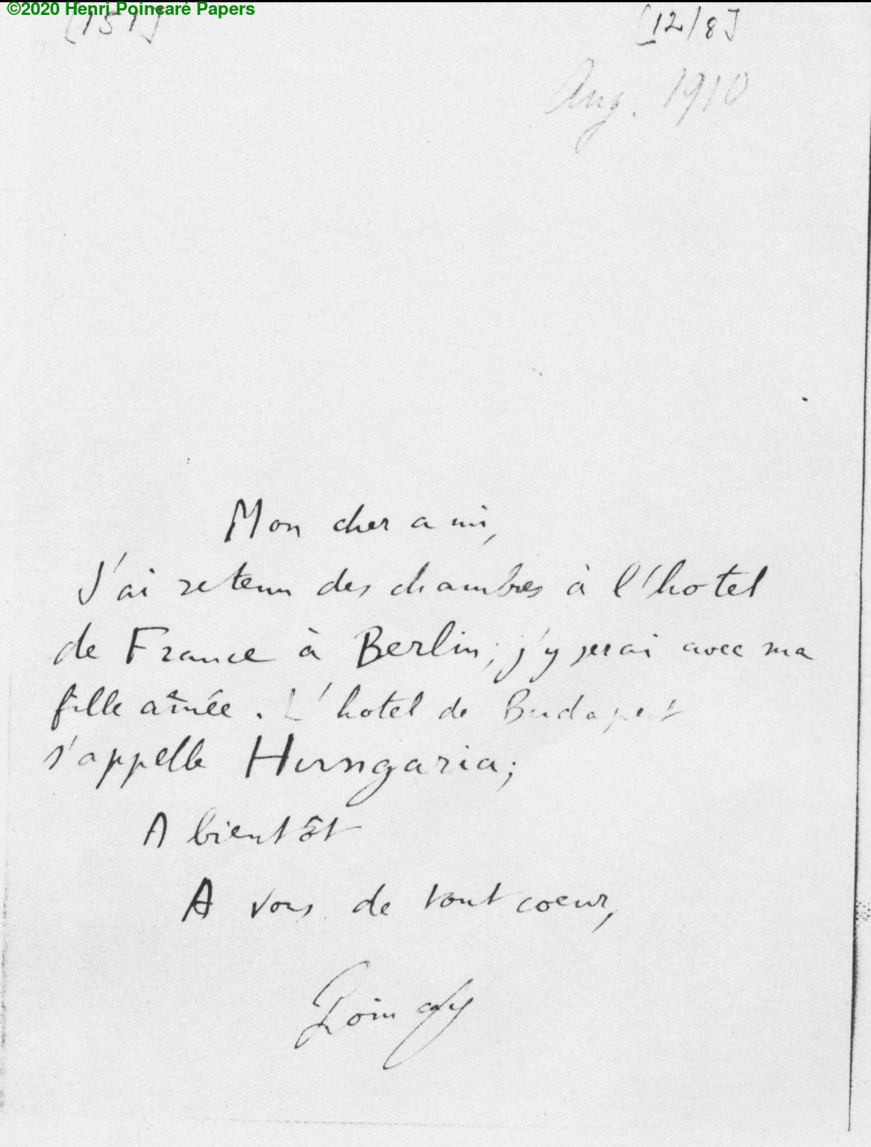 ©2020 Henri Poincaré Papers
[151] [12/8]
Aug. 1910
Mon cher ami,
J'ai retenu des chambres à l'hotel
de France à Berlin; j'y serai avec ma
fille aînée. L'hotel de Budapest
s'appelle Hungaria;
A bientôt
A vous de tout coeur,
Poincaré